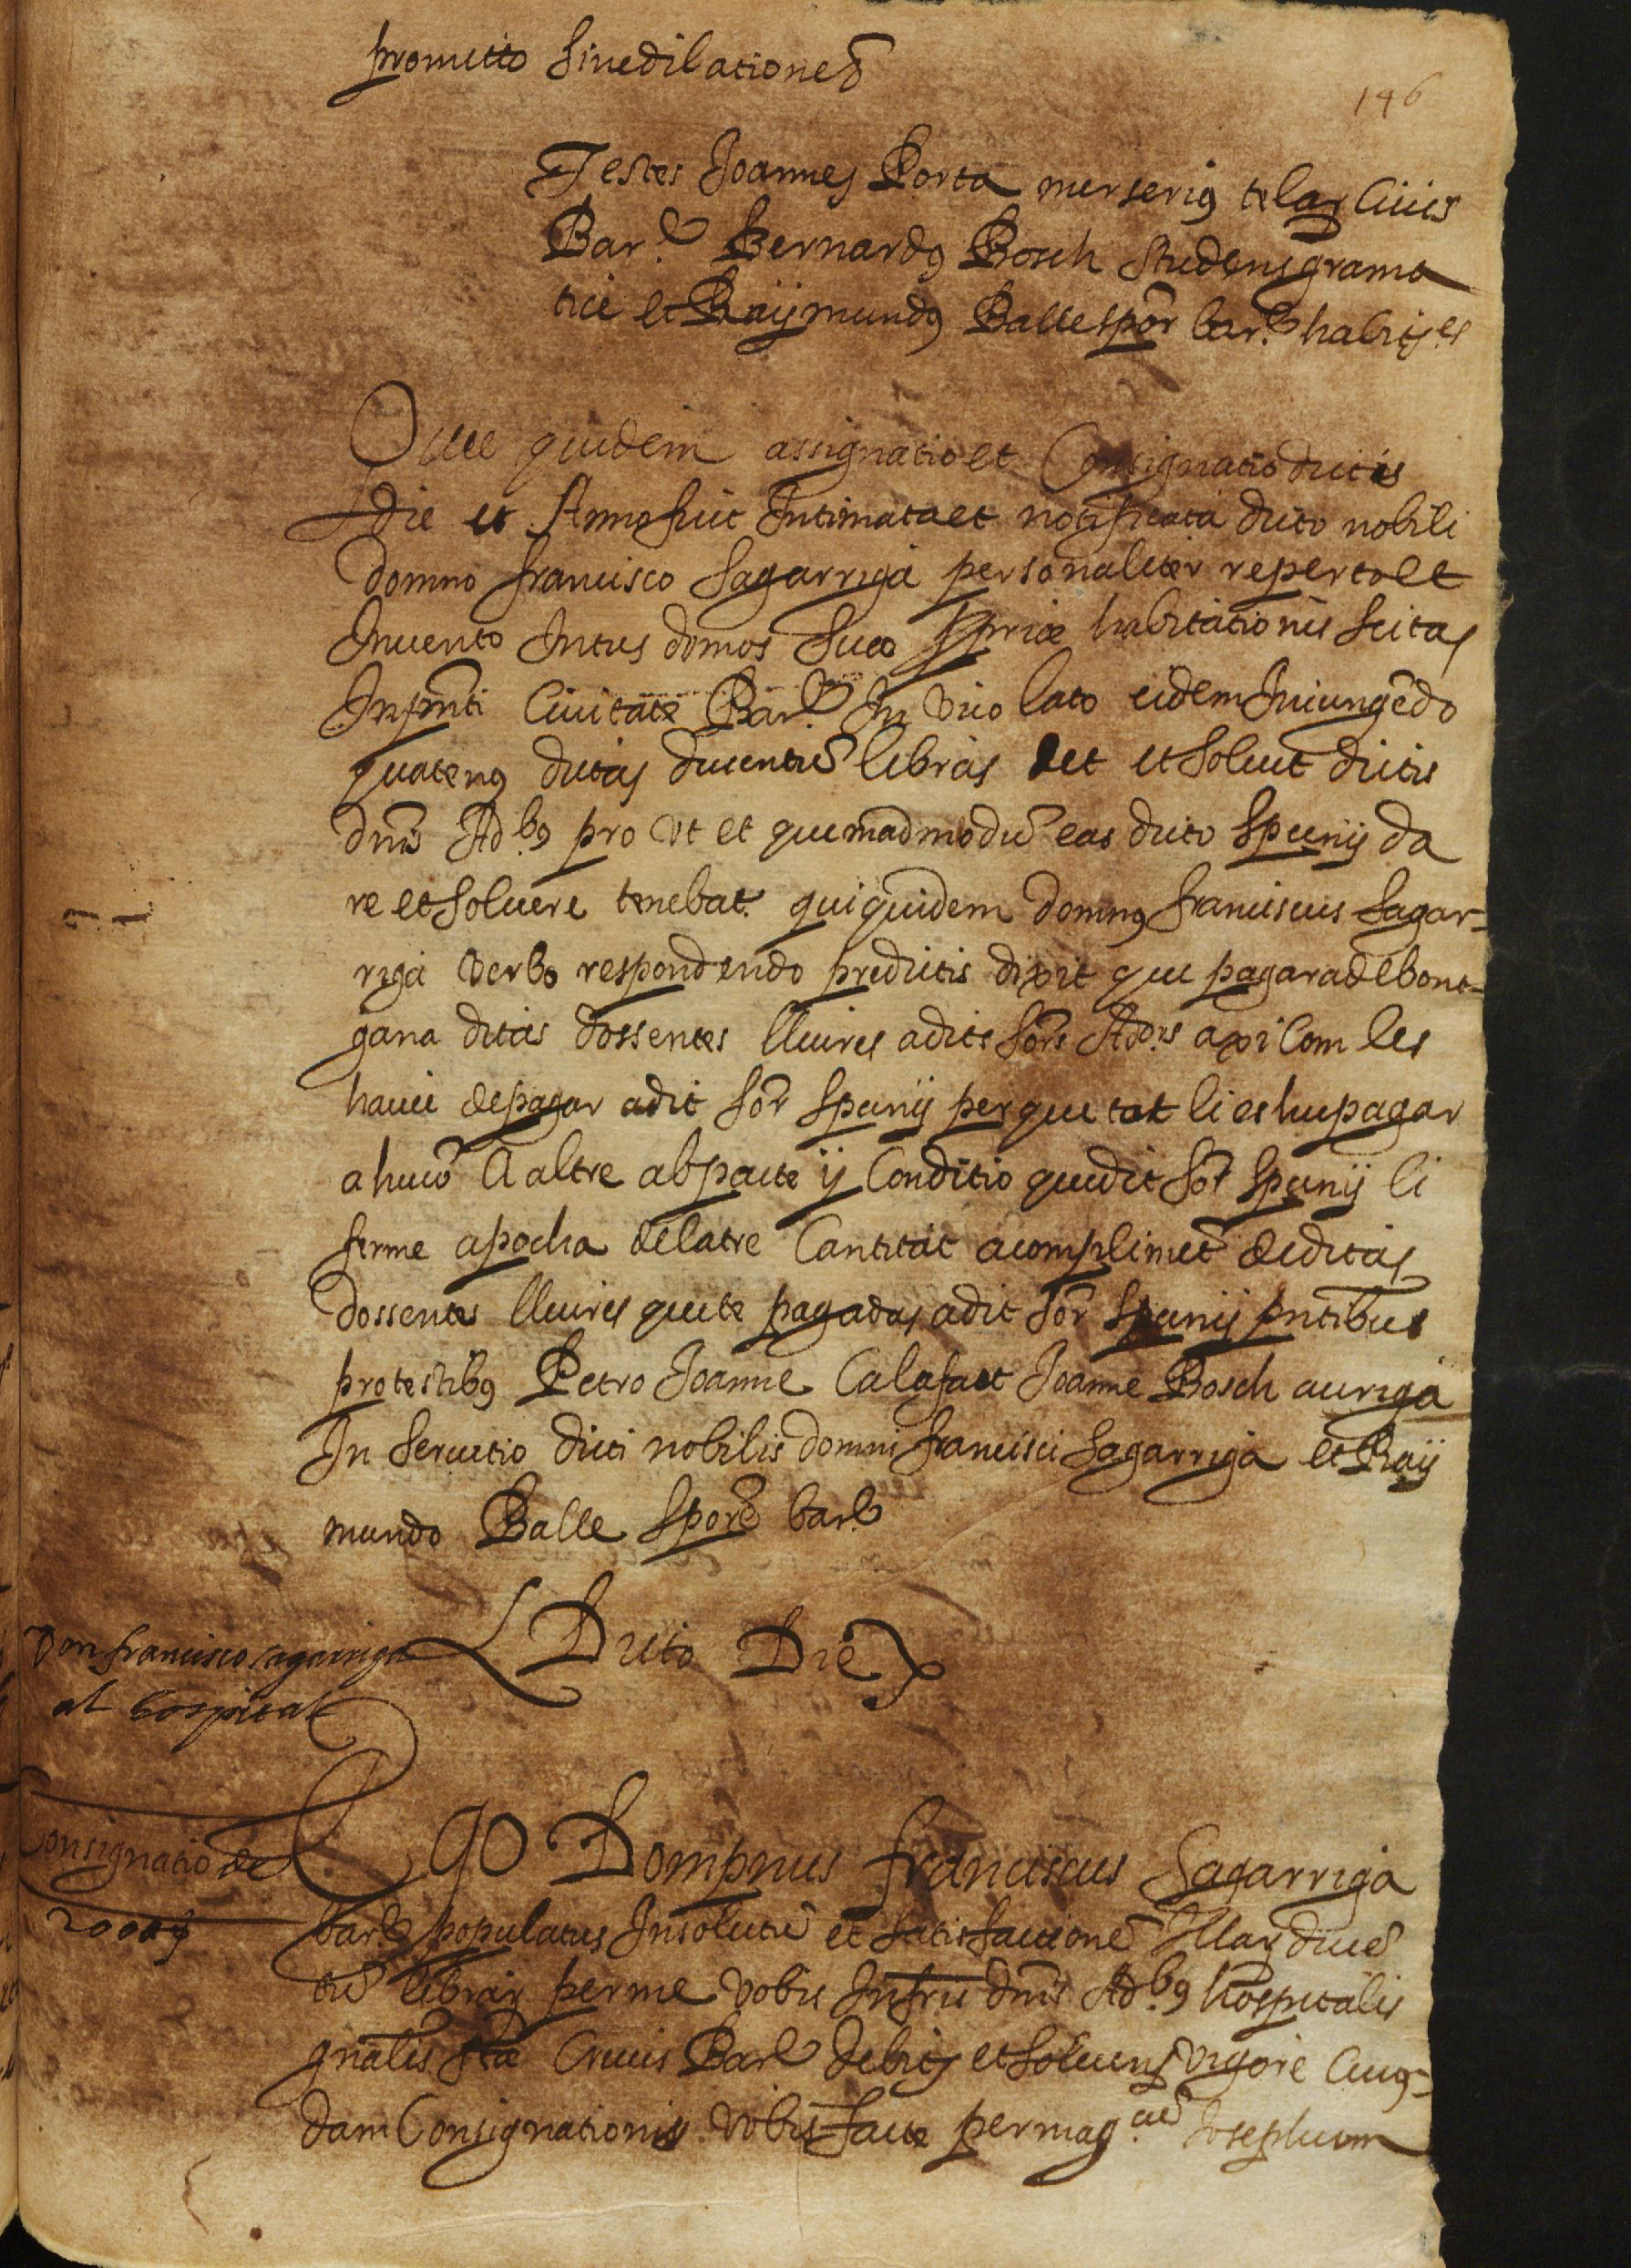 promitto sine dilationeɔ̃
146
Testes Joannes Porta merserius telaꝝ Civis
Barᵉ Bernardꝯ Bosch studens grama
tice et Raÿmundꝯ Balle spōr barᵉ habitⁿ
Que quidem assignatio et Consignatio dictis
die et Anno fuit Intimata et notificata dicto nobili
domno francisco Sagarriga personaliter reperto et
Invento Intus domos sue ꝓprie habitationis scitas
In pn̄ti Civitate Barᵉ In vico lato eidem Iniungēdo
quatenꝯ dictas ducentū libras det et solvat dictis
dn̄is Ad.ᵇꝯ pro ut et quemadmodū eas dicto Spuñy da
re et solvere tenebat. qui quidem domnꝯ franciscus Sagar=
riga verbo respondendo predictis dixit que pagara de bona=
gana dites dossentes lliures a dits sōrs Ad.ʳˢ axi com les
havie de pagar a dit sōr Spuñy per que tat li es hu pagar
a hu cō A altre ab pacte ÿ Conditio que dit sōr Spuñy li
ferme apocha de latre Cantitat a complimēt de ditas
dossentes lliures que te pagadas a dit sōr Spuñy pn̄tibus
pro testibꝯ Petro Joanne Calafaet Joanne Bosch auriga
In servitio dicti nobilis domni francisci Sagarriga et Raÿ
mundo Balle Sporē barᵉ
Dicto Die
Don francisco sagarriga
al hospital
Consignatio de
200 ₶
Ego Dompnus franciscus Sagarriga
barᵉ populatus In solutū et satisfactionē Illaꝝ ducē
tū libraꝝ per me vobis Infrīs dn̄is Ad.ᵇꝯ hospitalis
gn̄alis s̄te Crucis Barᵉ debitꝝ et solvenꝝ vigore Cuiꝯ=
dam Consignationis vobis facte per mag.ᶜᵘ̄ Josephum